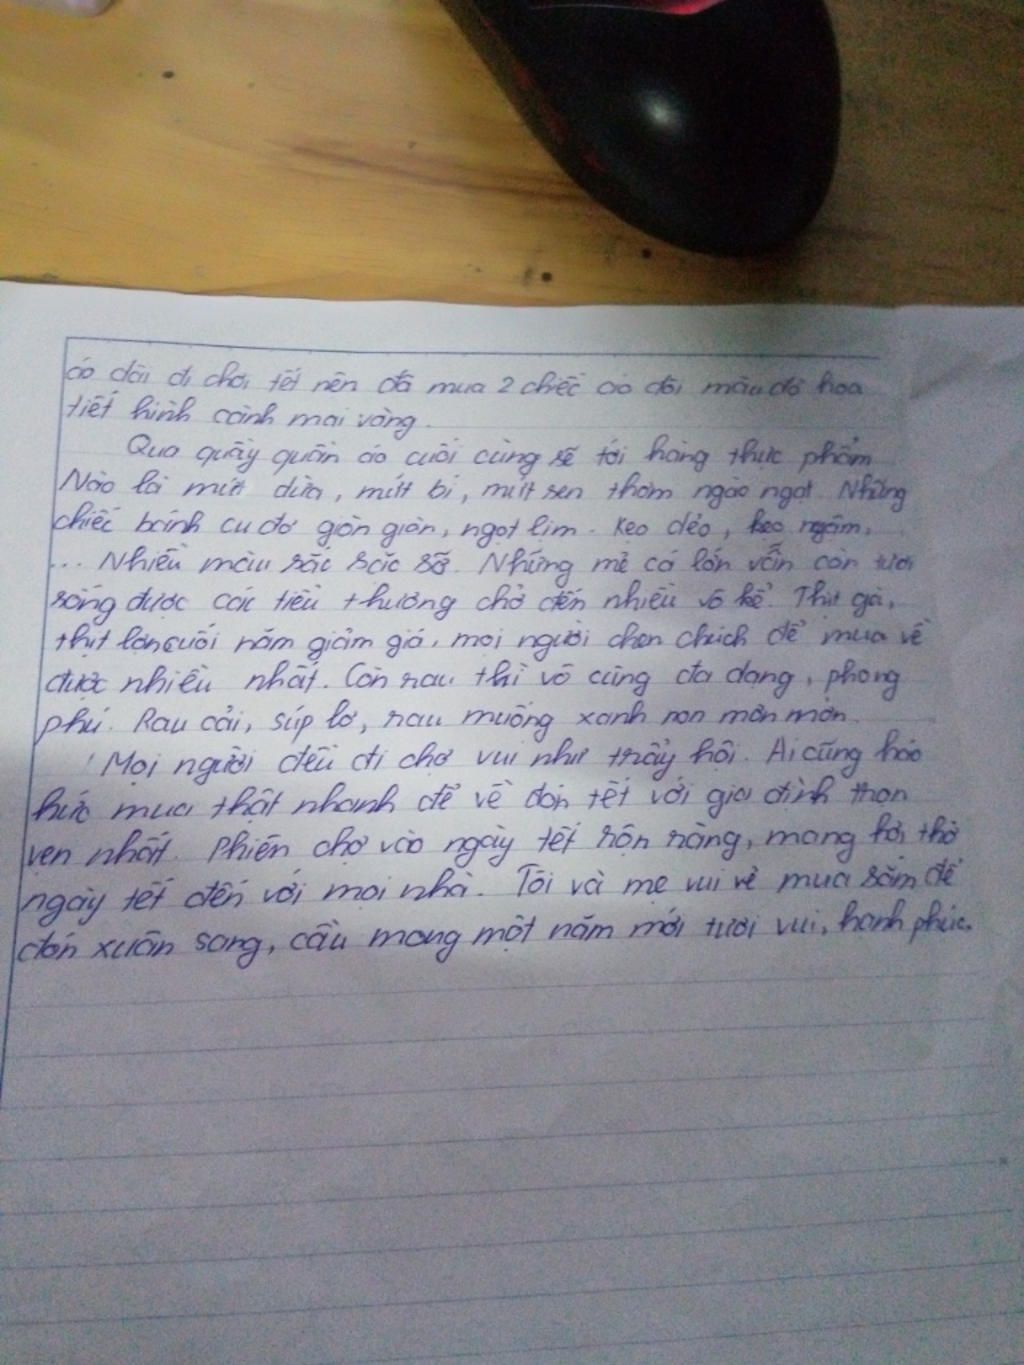 áo dài đi chơi tết nên đã mua 2 chiếc áo dài màu đỏ hoa
tiết hình cành mai vàng.
Qua quầy quần áo cuối cùng sẽ tới hàng thực phẩm
Nào là mứt dừa, mứt bí, mứt sen thơm ngào ngạt. Những
chiếc bánh cu đơ giòn giòn, ngọt lịm. Kẹo dẻo, kẹo ngậm,
... Nhiều màu sắc sặc sỡ. Những mẻ cá lớn vẫn còn tươi
sống được các tiểu thương chở đến nhiều vô kể. Thịt gà,
thịt lợn cuối năm giảm giá, mọi người chen chúch để mua về
được nhiều nhất. Còn rau thì vô cùng đa dạng, phong
phú. Rau cải, súp lơ, rau muống xanh non mơn mởn.
Mọi người đều đi chợ vui như trẩy hội. Ai cũng háo
hức mua thật nhanh để về đón tết với gia đình trọn
vẹn nhất. Phiên chợ vào ngày tết rộn ràng, mang hơi thở
ngày tết đến với mọi nhà. Tôi và mẹ vui vẻ mua sắm để
đón xuân sang, cầu mong một năm mới tươi vui, hạnh phúc.